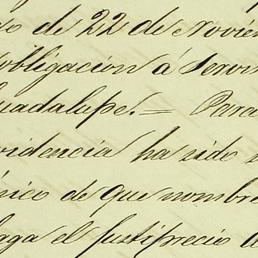 o de 22 de Noviem
obligacion á Servi
Guadalupe. = Para
videncia ha sido
nico de que nombre
aga el justiprecio d